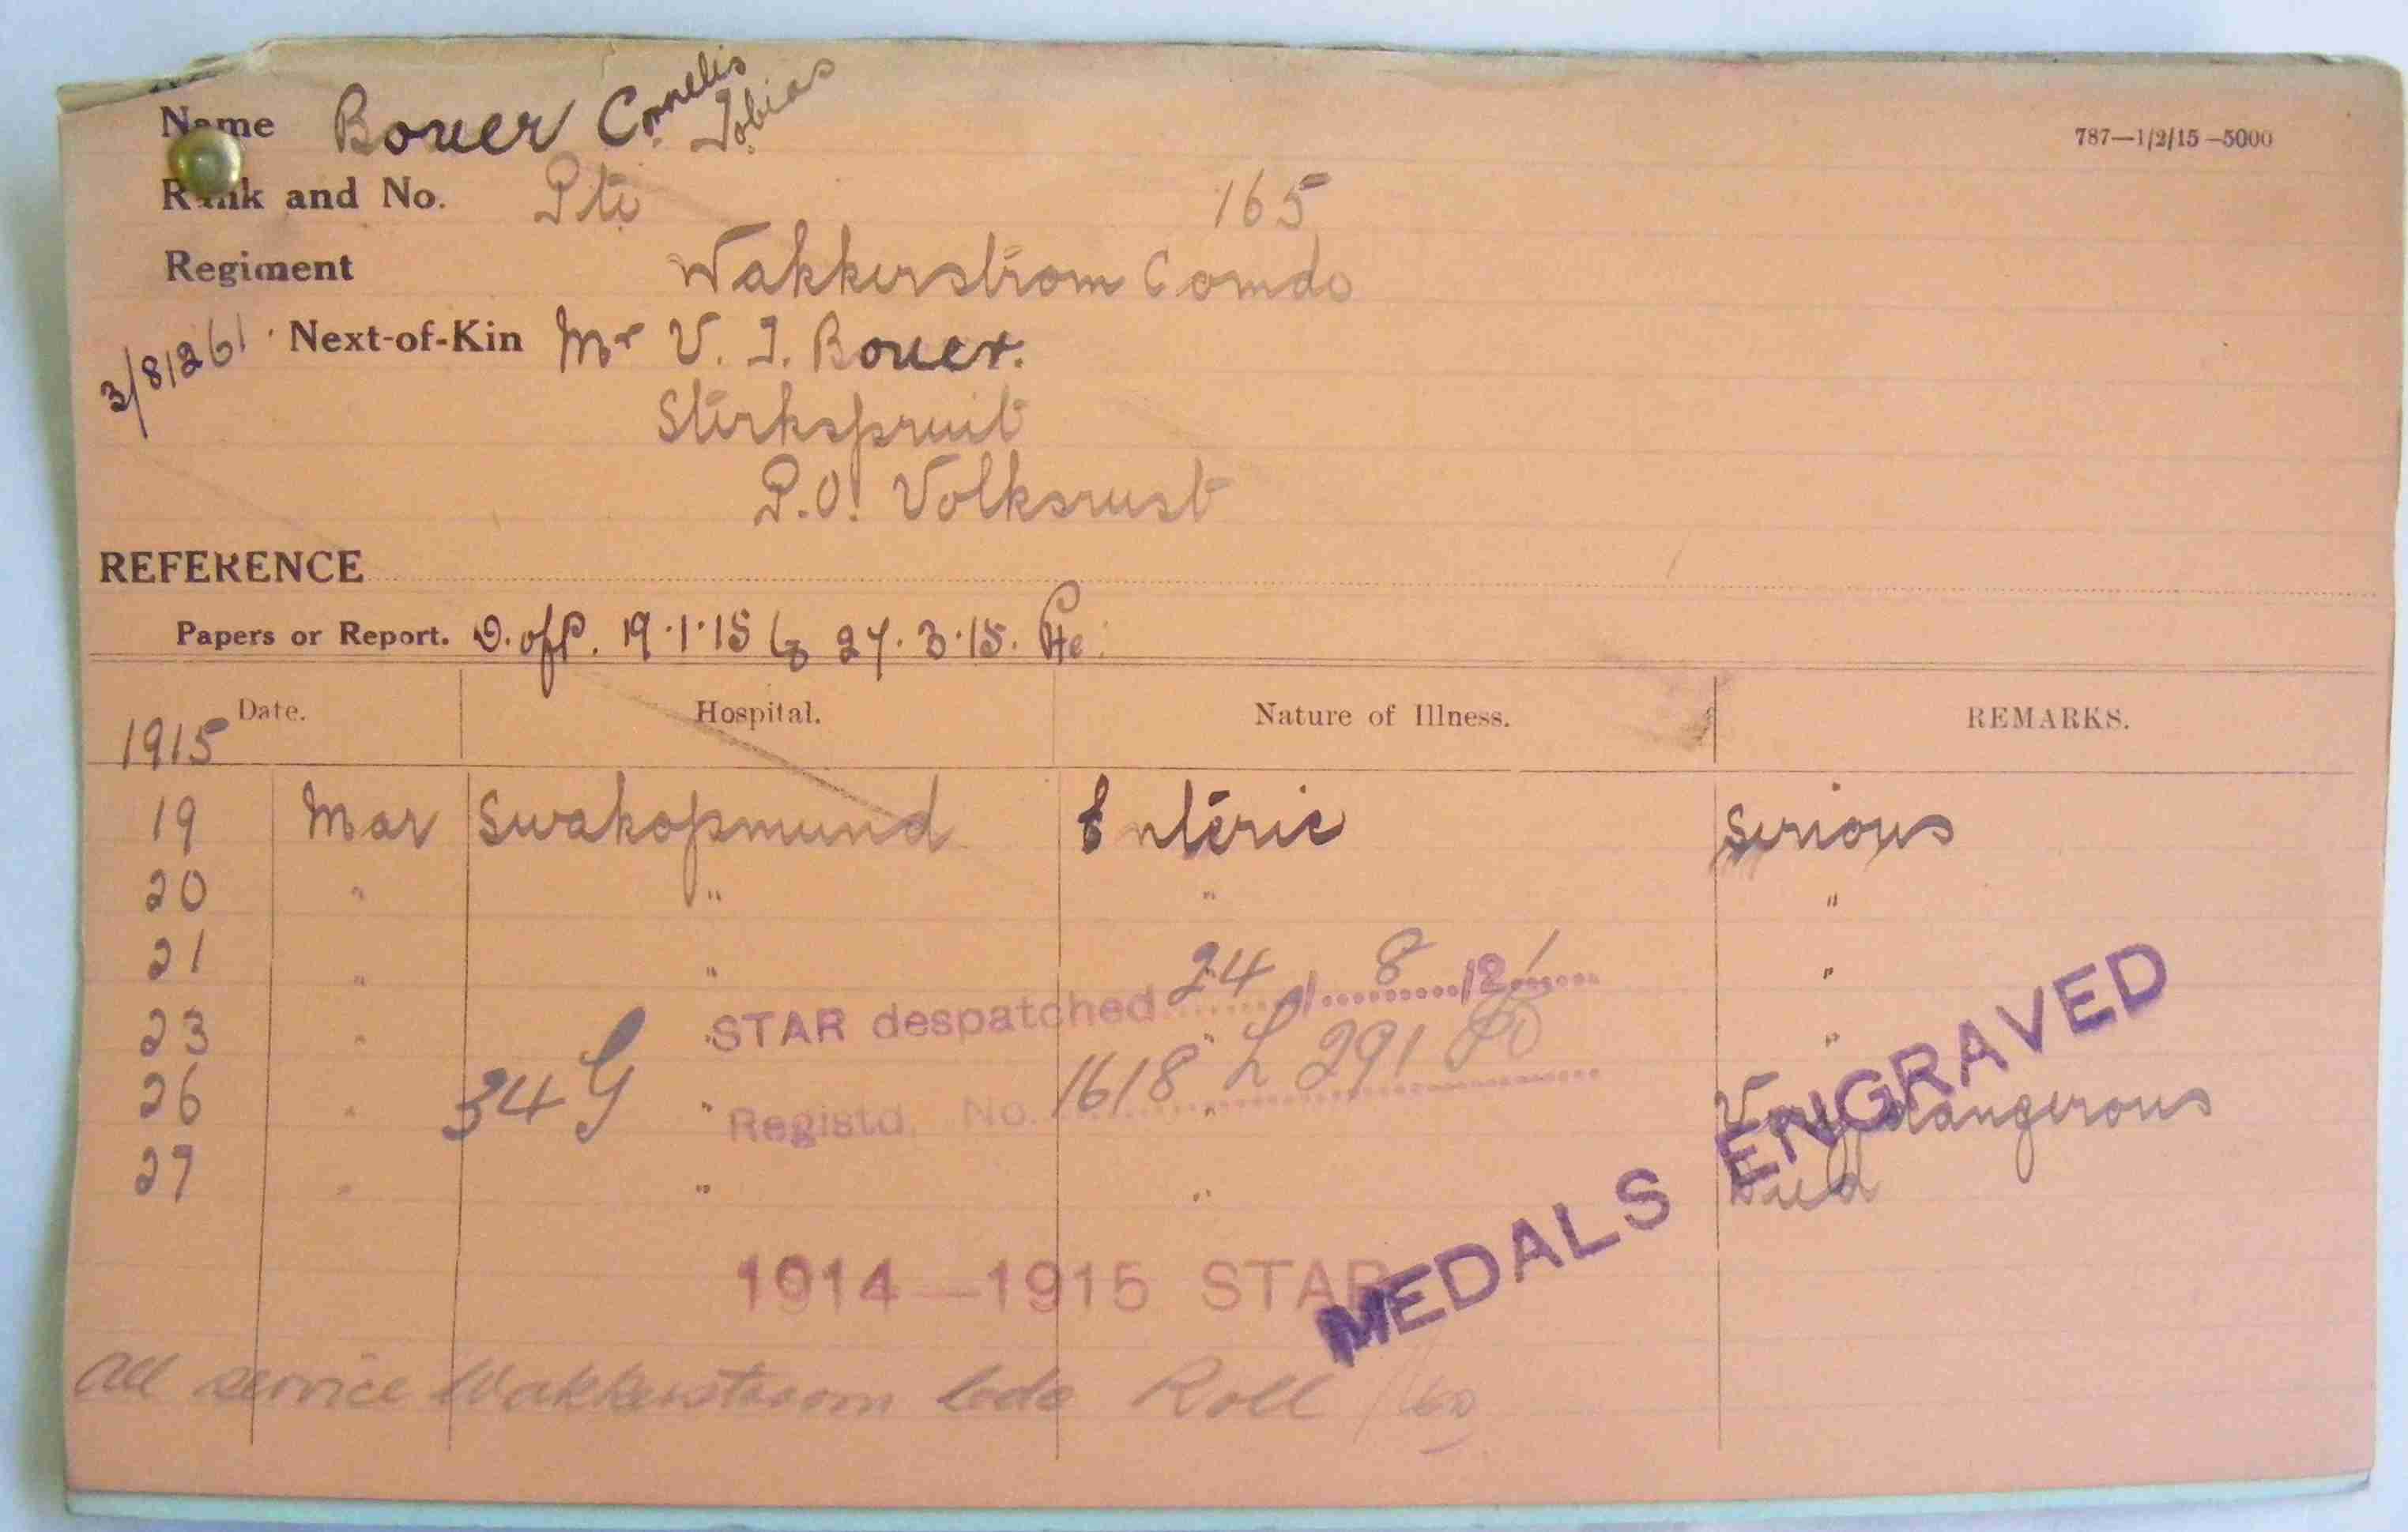 Name Bouer Cornelis Tobias
787—1/2/15—5000
Rank and No. Pte 165
Regiment Wakkerstrom Comdo
3/8/261 Next-of-Kin Mr V. J. Bouer.
Sterkspruit
P.O. Volksrust
REFERENCE
Papers or Report. D. off. 19.1.15 to 27.3.15.
1915 Date. Hospital. Nature of Illness. REMARKS.
19 Mar Swakopmund Enteric Serious
20 " " " "
21 " " "
STAR despatched 24/8/21
23 " " " "
26 " 34 G " " Very dangerous
Registd. No. 1618 L 291
27 " " " Died
MEDALS ENGRAVED
1914—1915 STAR
All service Wakkerstroom Cdo Roll